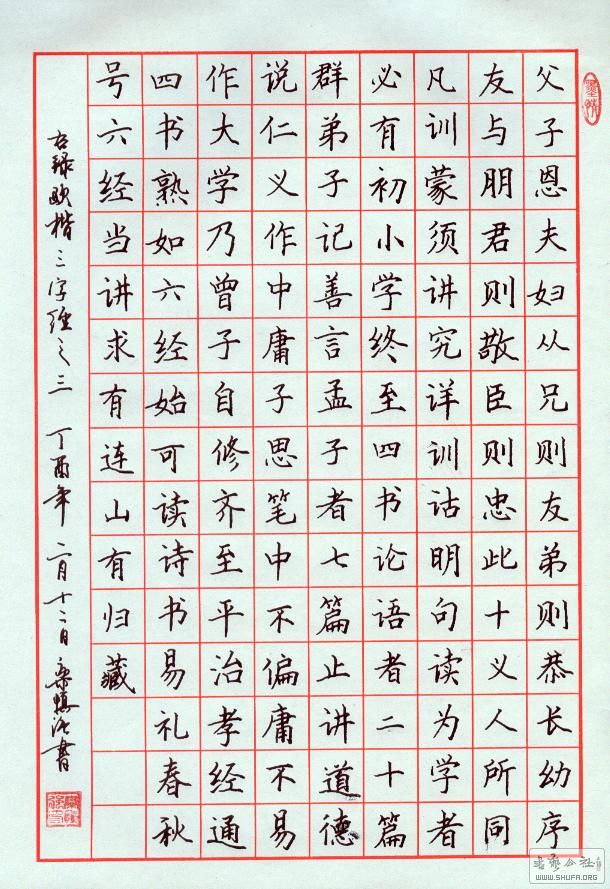 父子恩夫妇从兄则友弟则恭长幼序
友与朋君则敬臣则忠此十义人所同
凡训蒙须讲究详训诂明句读为学者
必有初小学终至四书论语者二十篇
群弟子记善言孟子者七篇止讲道德
说仁义作中庸子思笔中不偏庸不易
作大学乃曾子自修齐至平治孝经通
四书熟如六经始可读诗书易礼春秋
号六经当讲求有连山有归藏
右录欧楷三字经之三 丁酉年 二月十二日 书
书艺公社
WWW.SHUFA.ORG